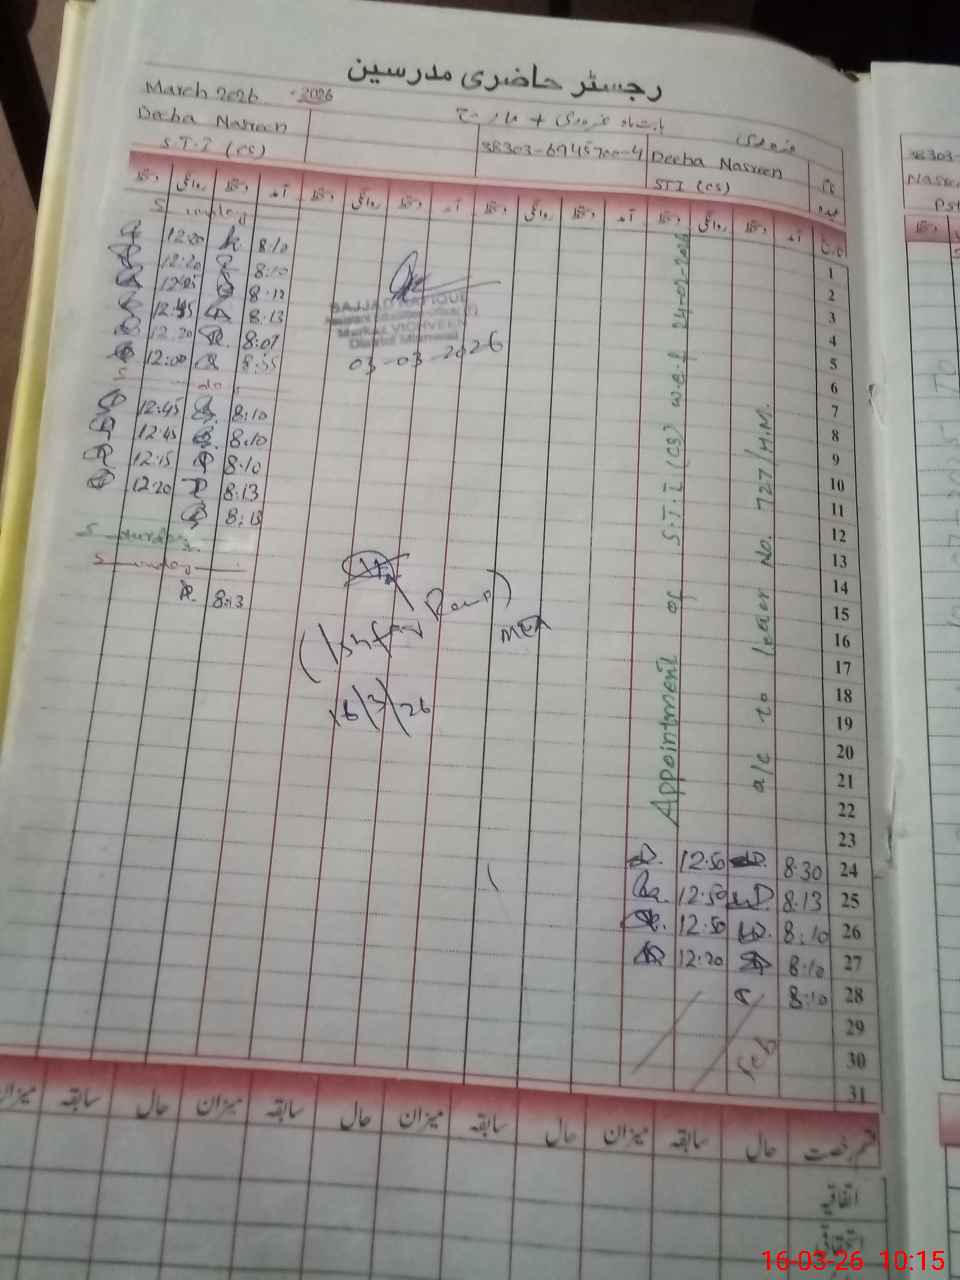 رجسٹر حاضری مدرسین
March 2026 - 2026
فروری
بابت ماہ فروری + مارچ
Deeba Nasreen
S.T.I (CS)
38303-6945700-4
Deeba Nasreen
STI (CS)
نام
عہدہ
دستخط روانگی دستخط آمد دستخط روانگی دستخط آمد دستخط روانگی دستخط آمد دستخط روانگی دستخط آمد
S unday
12:20 8:10
12:20 8:10
12:25 8:12
12:45 8:13
12:20 8:07
12:00 8:55
12:45 8:10
12:45 8:10
12:15 8:10
12:20 8:13
8:13
S unday
8:13
SAJJAD RAFIQUE
Markaz VICHVEEN
District Mianwali
03-03-2026
MEA
16/3/26
Appointment of S.T.I (CS) w.e.f 24-02-2026
a/c to letter No. 727/H.M.
1
2
3
4
5
6
7
8
9
10
11
12
13
14
15
16
17
18
19
20
21
22
23
12:50 8:30 24
12:50 8:13 25
12:50 8:10 26
12:20 8:10 27
8:10 28
29
Feb 30
31
قسم رخصت حال سابقہ میزان حال سابقہ میزان حال سابقہ میزان حال سابقہ میزان
اتفاقیہ
38303-
Nasre
PST
16-03-26 10:15